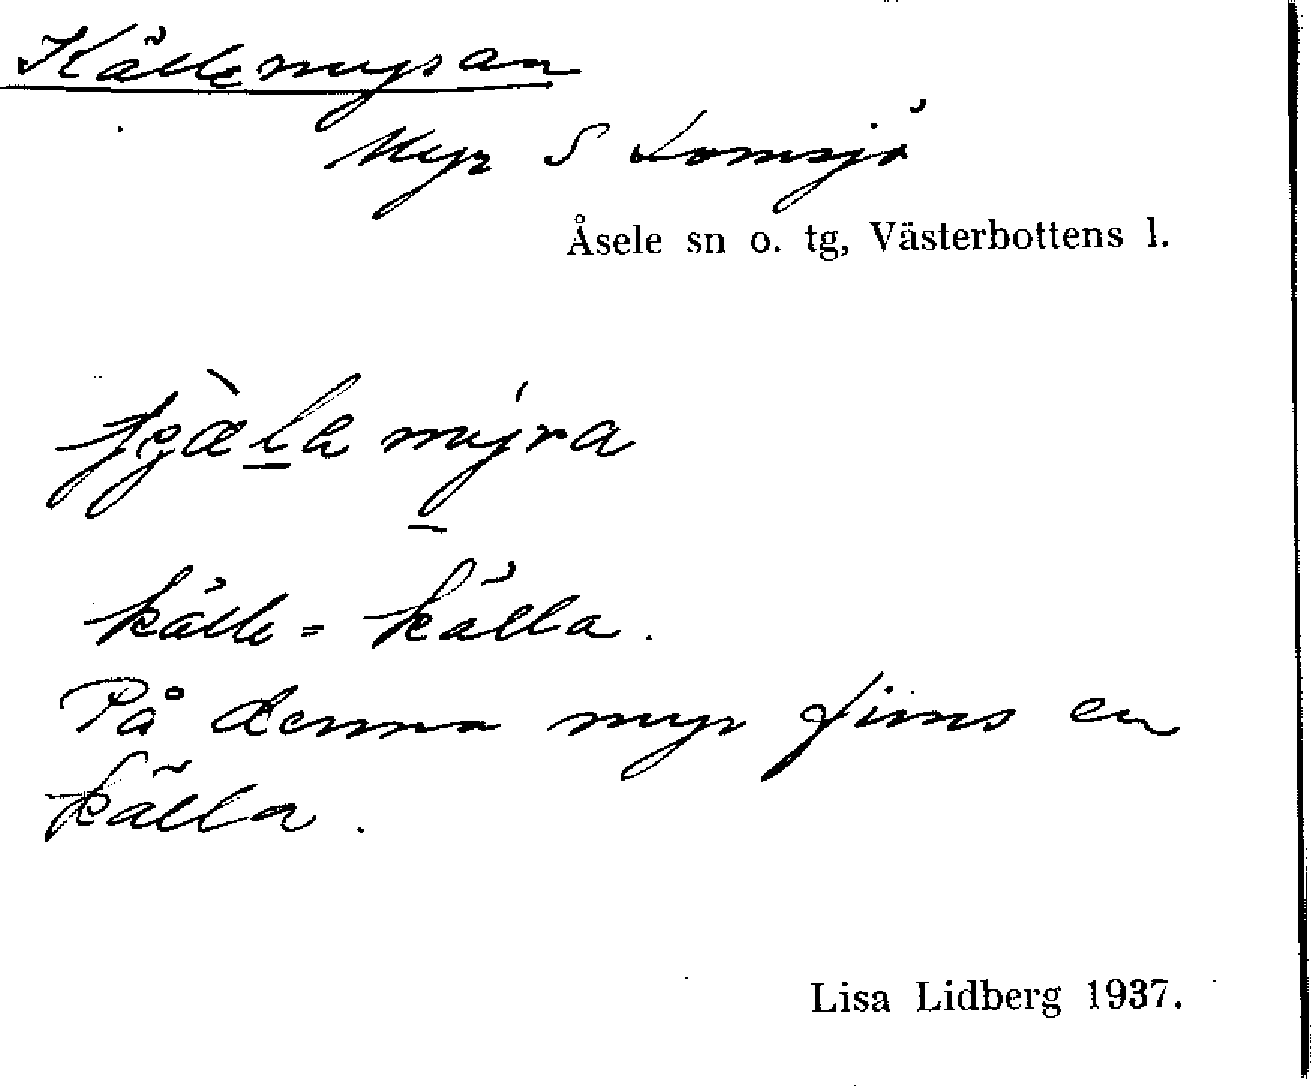 Källemyran
Myr S Lomsjö
Åsele sn o. tg, Västerbottens l.
mýra
källe = källa.
På denna myr finns en
källa.
Lisa Lidberg 1937.